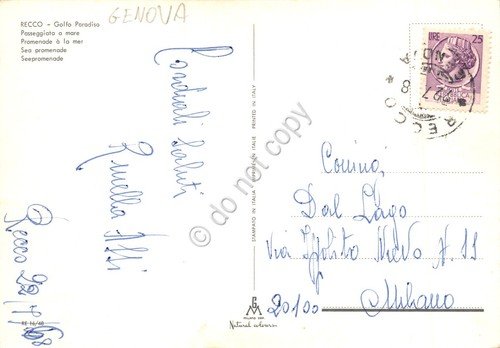 GENOVA
RECCO - Golfo Paradiso
Passeggiata a mare
Promenade à la mer
Sea promenade
Seepromenade
Cordiali saluti
Recco 22/7/68
RE 16/68
STAMPATO IN ITALIA
PRINTED IN ITALY
MILANO
Natural colours
do not copy
LIRE 25
RECCO
Dal Lago
Via Ippolito Nievo N. 11
20100 Milano